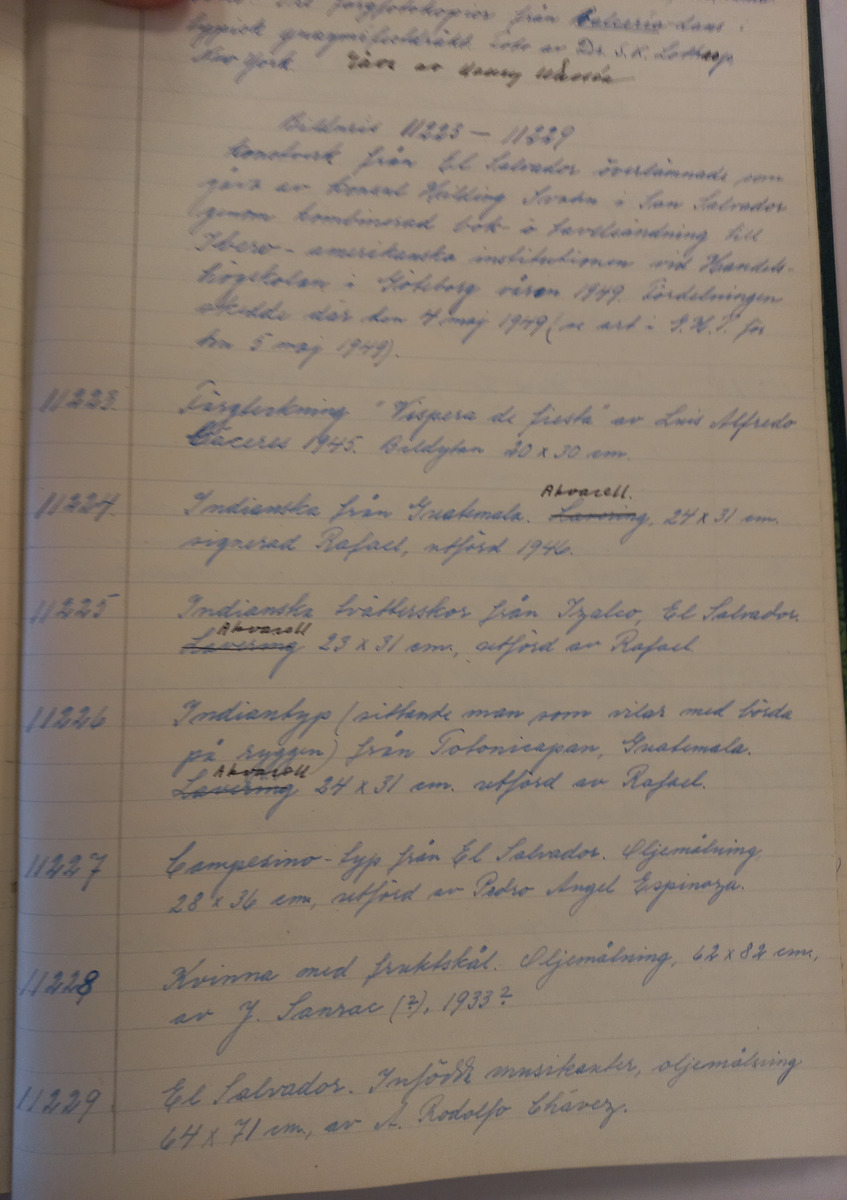 färgfotokopior från
typisk guaymifestdräkt. Foto av Dr. S.K. Lothrop,
New York. Gåva av Henry Wassén
Bildnris 11223 — 11229
Konstverk från El Salvador överlämnade som
gåva av konsul Hilding Svahn i San Salvador
genom kombinerad bok o tavelsändning till
Ibero-amerikanska institutionen vid Handels-
högskolan i Göteborg våren 1949. Fördelningen
skedde där den 4 maj 1949 (se art i G.H.T. för
den 5 maj 1949).
11223. Färgteckning "Vispera de fiesta" av Luis Alfredo
Cáceres 1945. Bildytan 20 x 30 cm.
Akvarell.
11224 Indianska från Guatemala. Lavering, 24 x 31 cm.
signerad Rafael, utförd 1946.
11225 Indianska tvätterskor från Izalco, El Salvador.
Akvarell
Lavering 23 x 31 cm., utförd av Rafael
11226 Indiantyp (sittande man som vilar med börda
på ryggen) från Totonicapan, Guatemala.
Akvarell
Lavering 24 x 31 cm. utförd av Rafael.
11227 Campesino-typ från El Salvador. Oljemålning,
28 x 36 cm, utförd av Pedro Angel Espinoza.
11228 Kvinna med fruktskål. Oljemålning, 62 x 82 cm.,
av J. Sanrac (?), 1933?
11229. El Salvador. Infödda musikanter, oljemålning
64 x 71 cm., av A. Rodolfo Chávez.